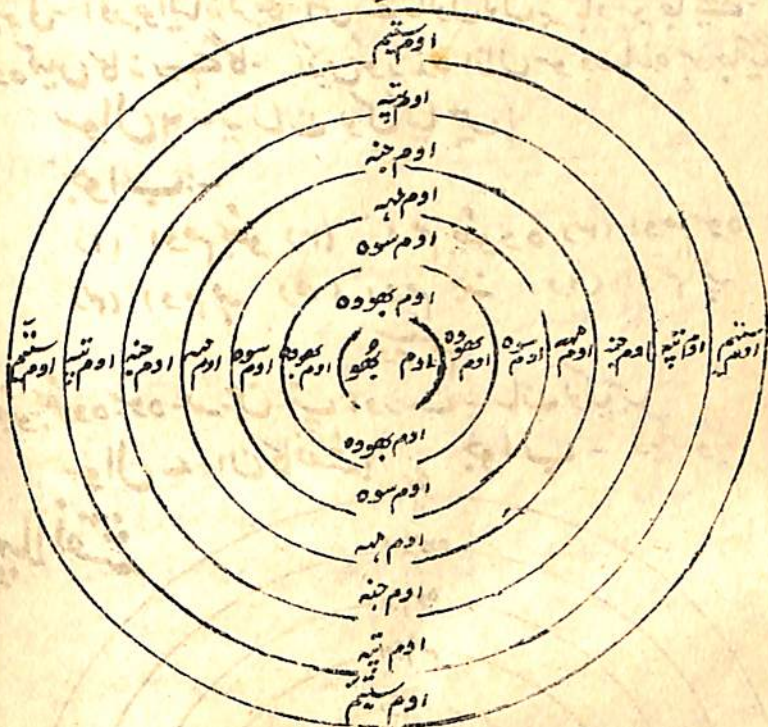 اوم ستیم
اوم تپہ
اوم جنہ
اوم مہہ
اوم سوہ
اوم بھووہ
اوم ستیم اوم تپہ اوم جنہ اوم مہہ اوم سوہ اوم بھووہ اوم بھو اوم بھووہ اوم سوہ اوم مہہ اوم جنہ اوم تپہ اوم ستیم
اوم بھووہ
اوم سوہ
اوم مہہ
اوم جنہ
اوم تپہ
اوم ستیم